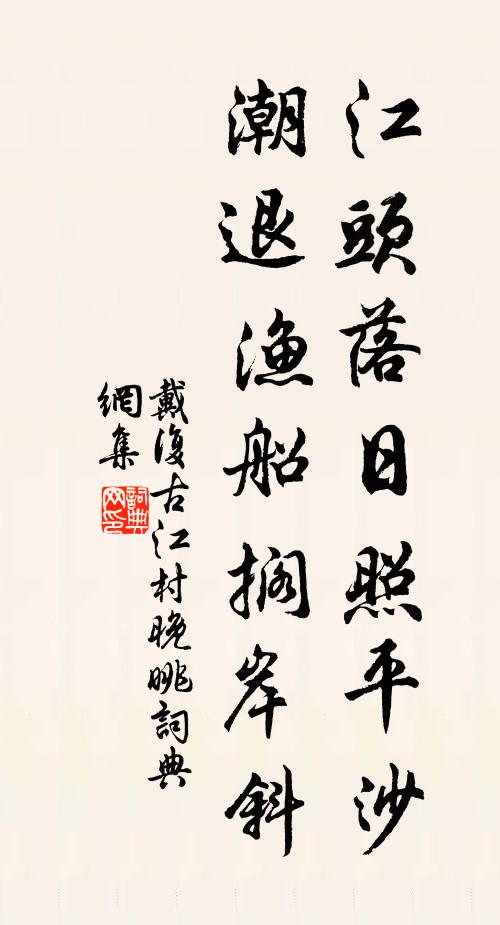 江頭落日照平沙
潮退漁船擱岸斜
戴復古江村晚眺詞典
網集
詞典網印